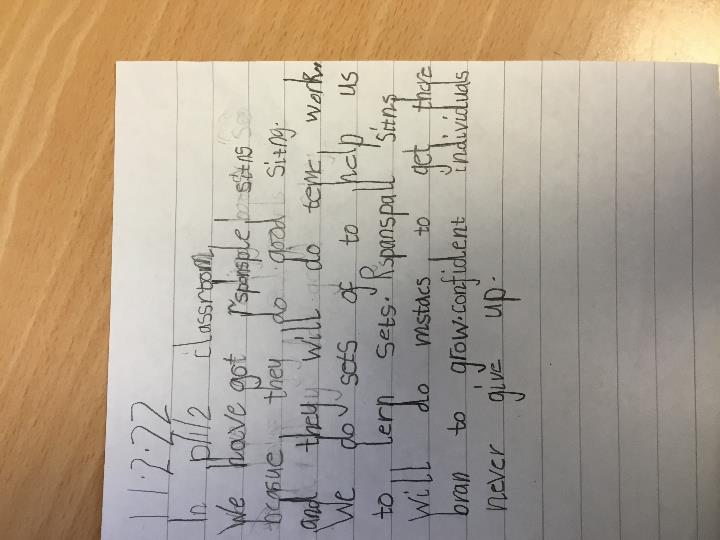 11.2.22
In P1/2 classroom,
We have got rsponsple sitns
becasue they do good sitng.
and they will do teme work..
We do sets of to help us
to lern sets. Rspanspall sitns
Will do mstacs to get there
bran to grow.confident individuals
never give up.